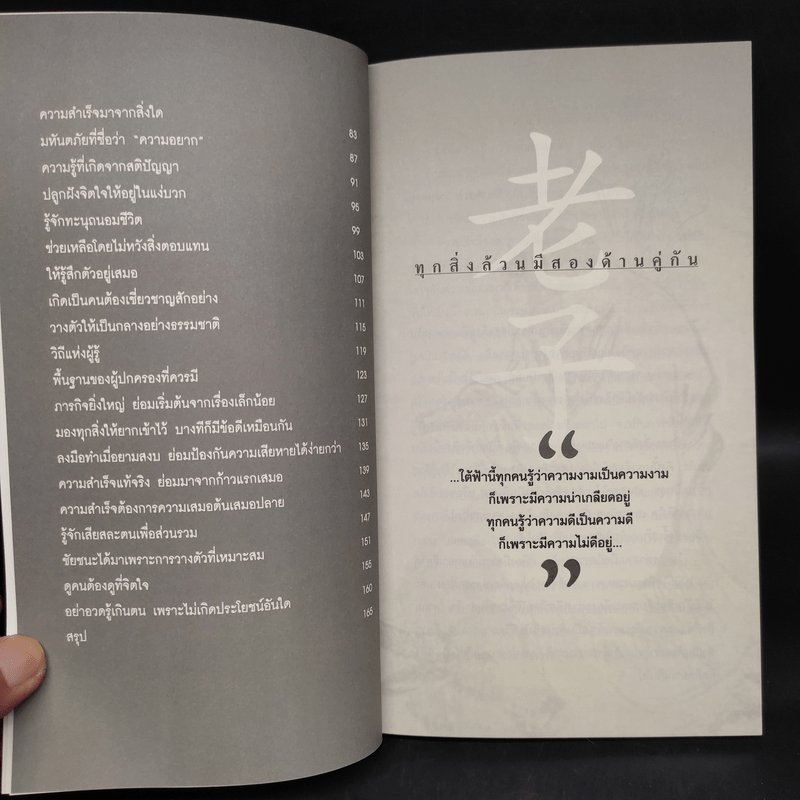 ความสำเร็จมาจากสิ่งใด 83
มหันตภัยที่ชื่อว่า "ความอยาก" 87
ความรู้ที่เกิดจากสติปัญญา 91
ปลูกฝังจิตใจให้อยู่ในแง่บวก 95
รู้จักทะนุถนอมชีวิต 99
ช่วยเหลือโดยไม่หวังสิ่งตอบแทน 103
ให้รู้สึกตัวอยู่เสมอ 107
เกิดเป็นคนต้องเชี่ยวชาญสักอย่าง 111
วางตัวให้เป็นกลางอย่างธรรมชาติ 115
วิถีแห่งผู้รู้ 119
พื้นฐานของผู้ปกครองที่ควรมี 123
ภารกิจยิ่งใหญ่ ย่อมเริ่มต้นจากเรื่องเล็กน้อย 127
มองทุกสิ่งให้ยากเข้าไว้ บางทีก็มีข้อดีเหมือนกัน 131
ลงมือทำเมื่อยามสงบ ย่อมป้องกันความเสียหายได้ง่ายกว่า 135
ความสำเร็จแท้จริง ย่อมมาจากก้าวแรกเสมอ 139
ความสำเร็จต้องการความเสมอต้นเสมอปลาย 143
รู้จักเสียสละตนเพื่อส่วนรวม 147
ชัยชนะได้มาเพราะการวางตัวที่เหมาะสม 151
ดูคนต้องดูที่จิตใจ 155
อย่าอวดรู้เกินตน เพราะไม่เกิดประโยชน์อันใด 160
สรุป 165
老子
ทุกสิ่งล้วนมีสองด้านคู่กัน
“
...ใต้ฟ้านี้ทุกคนรู้ว่าความงามเป็นความงาม
ก็เพราะมีความน่าเกลียดอยู่
ทุกคนรู้ว่าความดีเป็นความดี
ก็เพราะมีความไม่ดีอยู่...
”